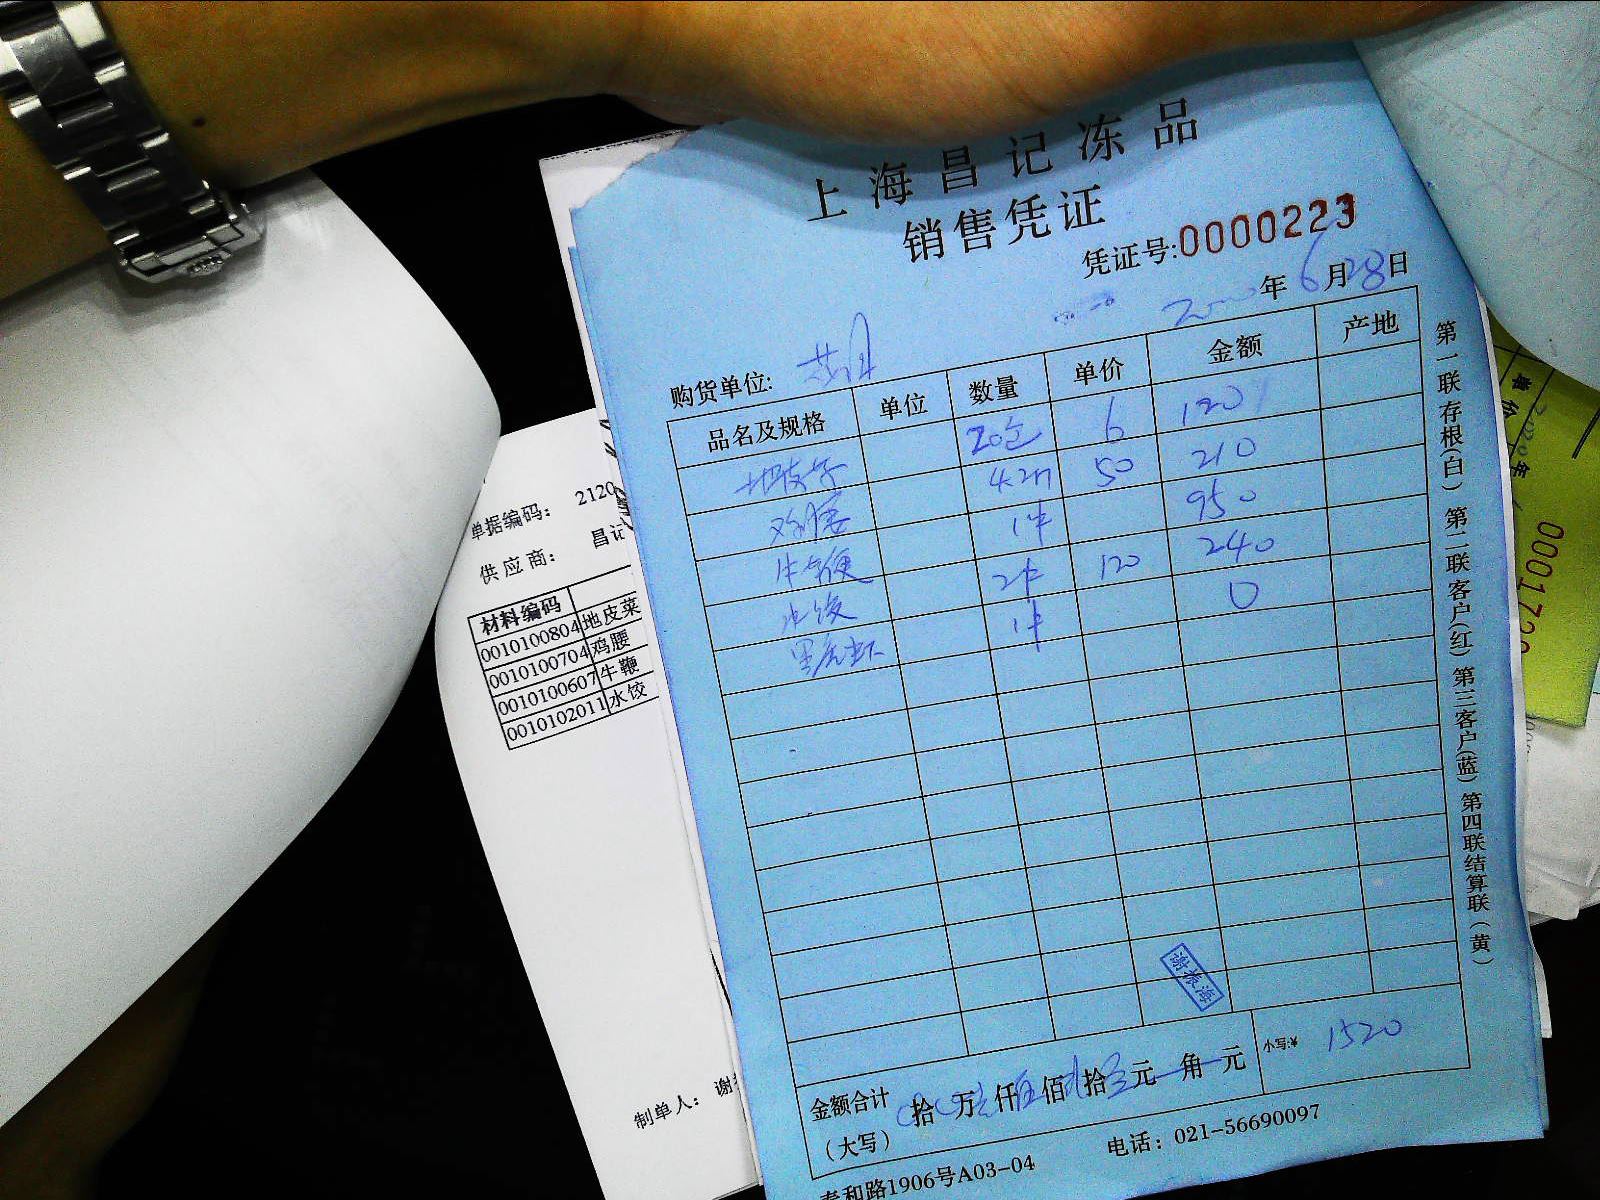 上海昌记冻品
销售凭证
凭证号:0000223
年6月28日
购货单位:
品名及规格 单位 数量 单价 金额 产地
20包 6 120
4.2 50 210
1件 950
水饺 2件 120 240
黑虎虾 1件 0
谢振海
金额合计(大写) 拾 万 仟伍佰 拾 元 角 元 小写:¥ 1520
泰和路1906号A03-04 电话: 021-56690097
第一联存根(白) 第二联客户(红) 第三客户(蓝) 第四联结算联(黄)
单据编码: 2120
供应商: 昌记
材料编码
0010100804 地皮菜
0010100704 鸡腰
0010100607 牛鞭
0010102011 水饺
制单人: 谢